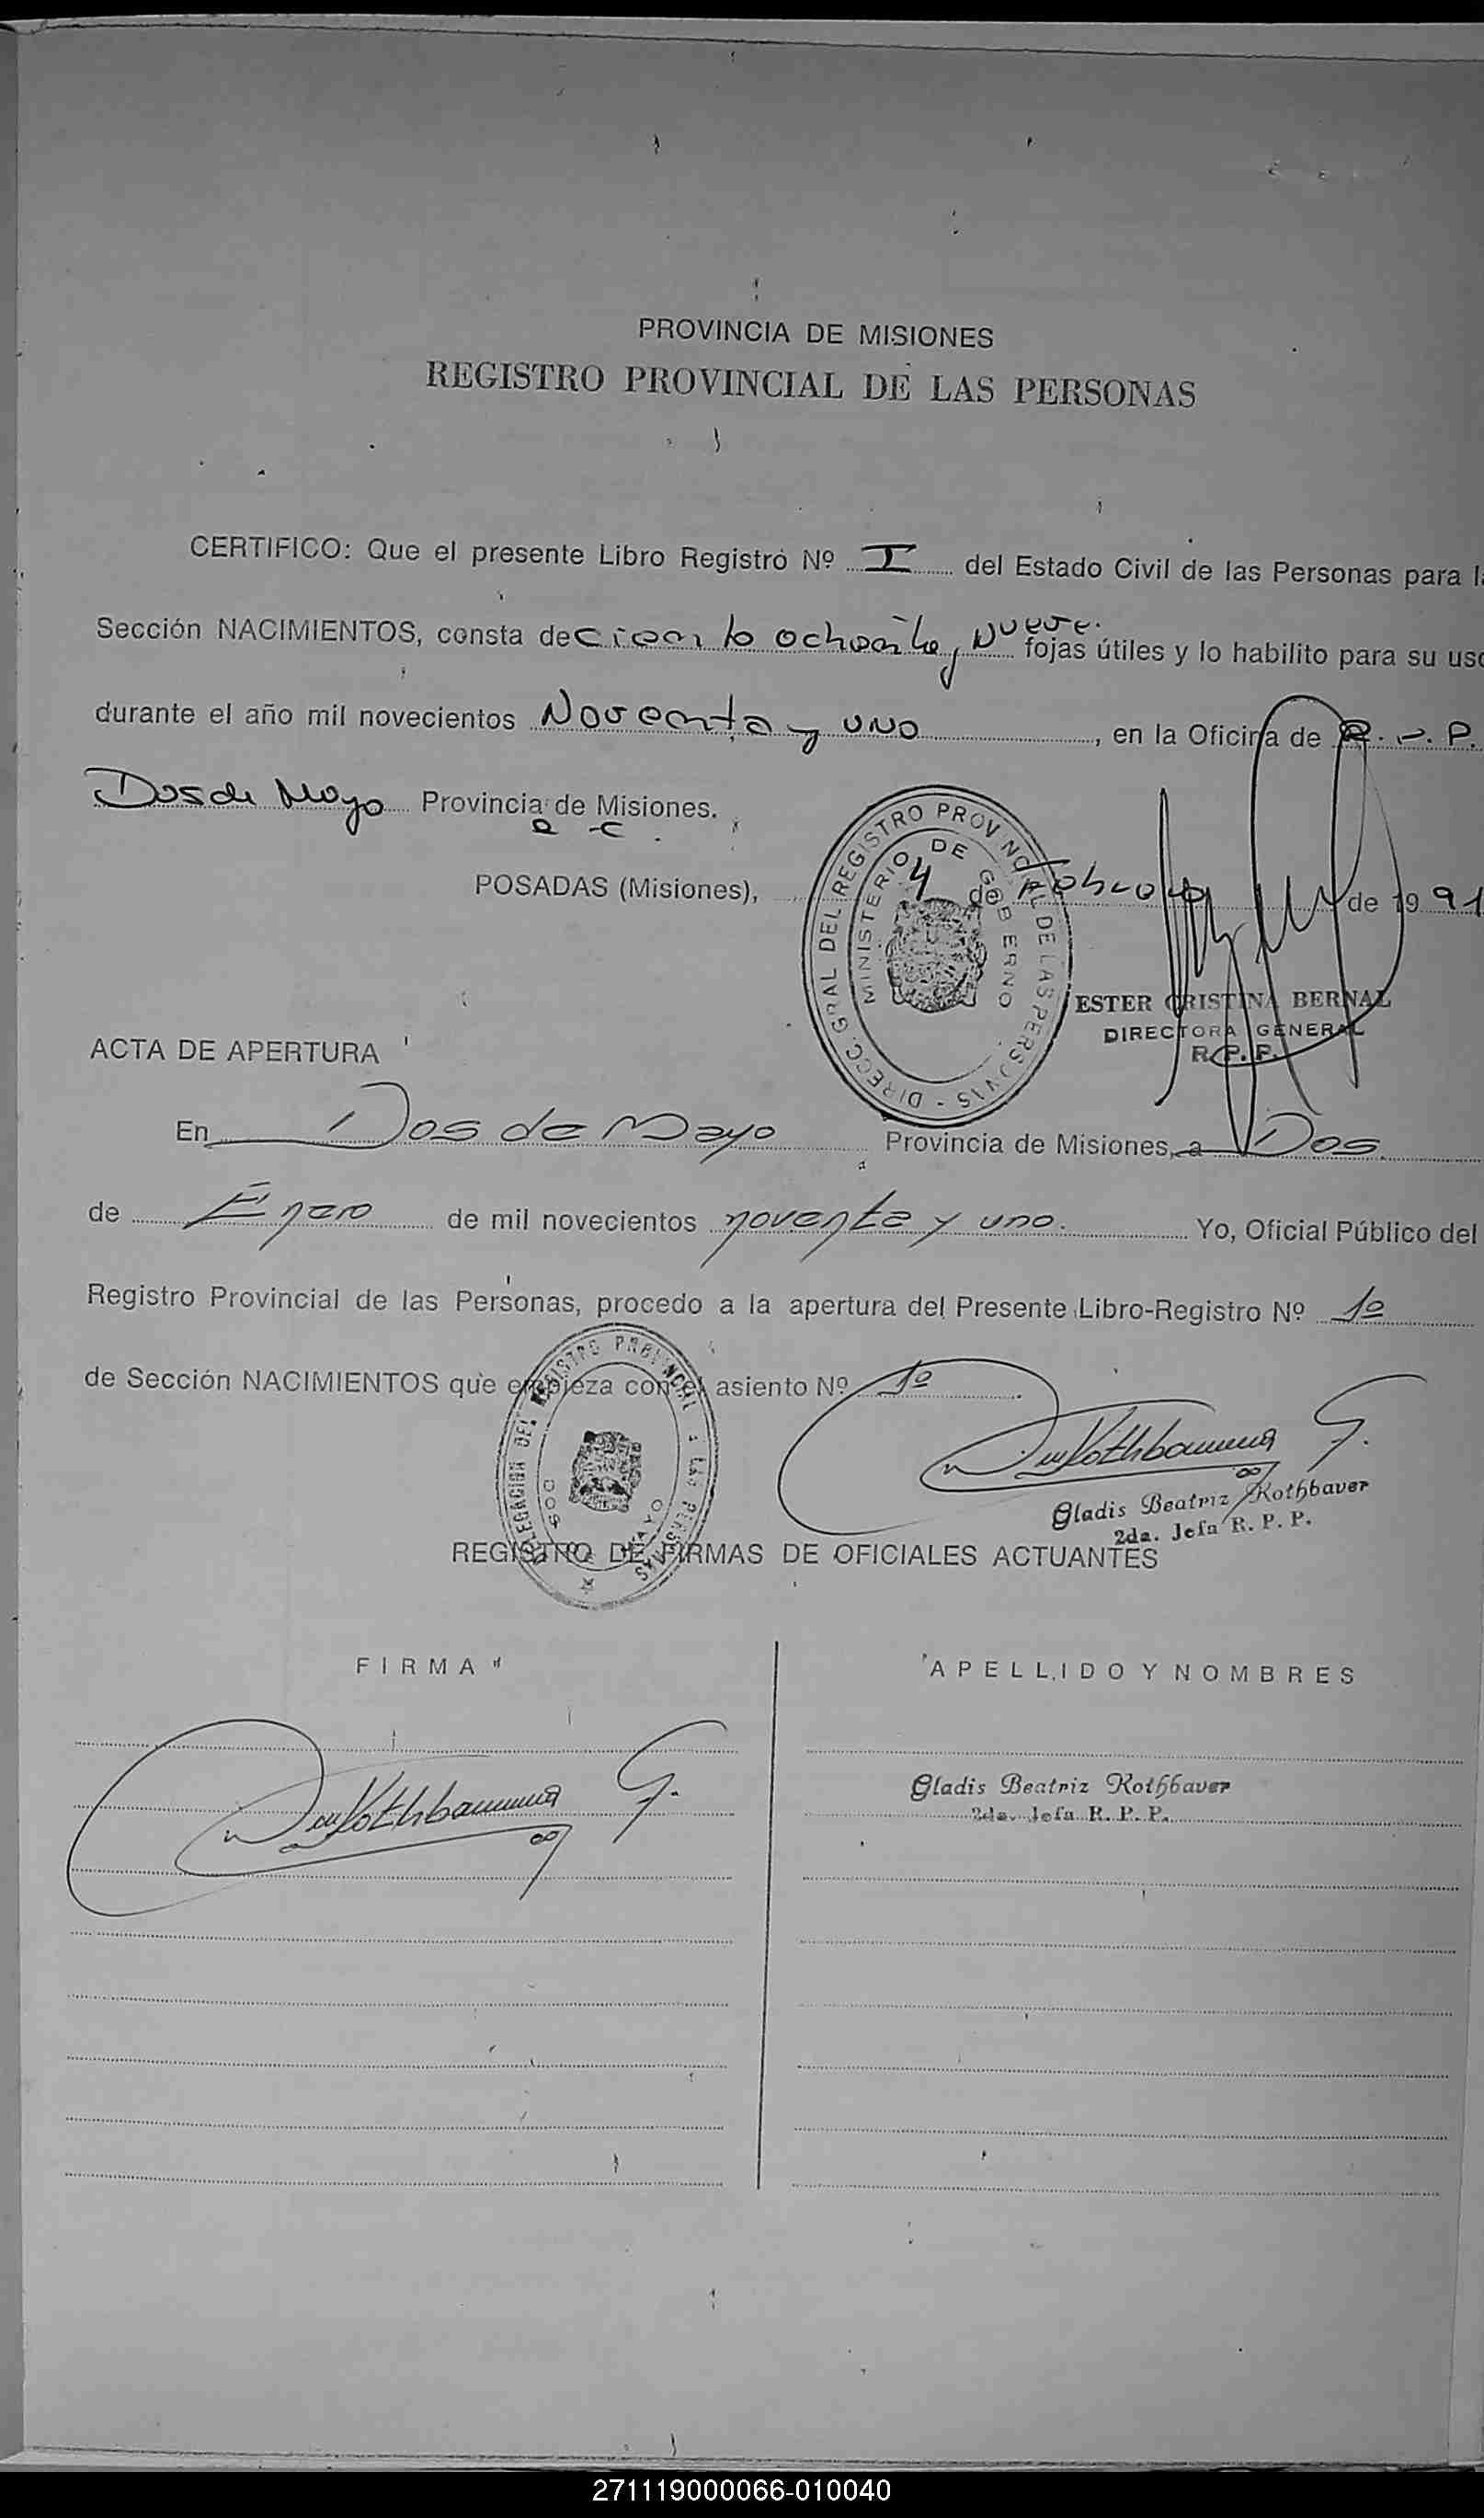 PROVINCIA DE MISIONES
REGISTRO PROVINCIAL DE LAS PERSONAS
CERTIFICO: Que el presente Libro Registro Nº I del Estado Civil de las Personas para l
Sección NACIMIENTOS, consta de ciento ochenta y nueve. fojas útiles y lo habilito para su uso
durante el año mil novecientos Noventa y uno, en la Oficina de R. P. P.
Dos de Mayo Provincia de Misiones.
POSADAS (Misiones), 4 de Febrero de 1991
DIRECC. GRAL DEL REGISTRO PROVINCIAL DE LAS PERSONAS
MINISTERIO DE GOBIERNO
ESTER CRISTINA BERNAL
DIRECTORA GENERAL
R. P. P.
ACTA DE APERTURA
En Dos de Mayo Provincia de Misiones, a Dos
de Enero de mil novecientos noventa y uno. Yo, Oficial Público del
Registro Provincial de las Personas, procedo a la apertura del Presente Libro-Registro Nº 1º
de Sección NACIMIENTOS que empieza con el asiento Nº 1º
DELEGACION DEL REGISTRO PROVINCIAL DE LAS PERSONAS
DOS DE MAYO
Gladis Beatriz Rothbauer
2da. Jefa R. P. P.
REGISTRO DE FIRMAS DE OFICIALES ACTUANTES
FIRMA
APELLIDO Y NOMBRES
Gladis Beatriz Rothbauer
2da. Jefa R. P. P.
271119000066-010040